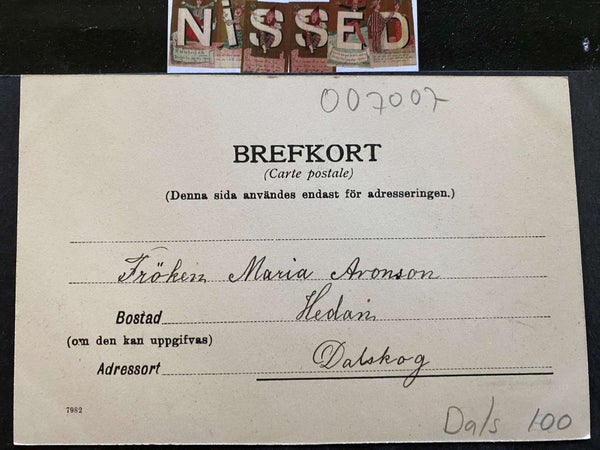 NISSED
007007
BREFKORT
(Carte postale)
(Denna sida användes endast för adresseringen.)
Fröken Maria Aronson
Bostad Hedan
(om den kan uppgifvas)
Adressort Dalskog
7982
Dals 100